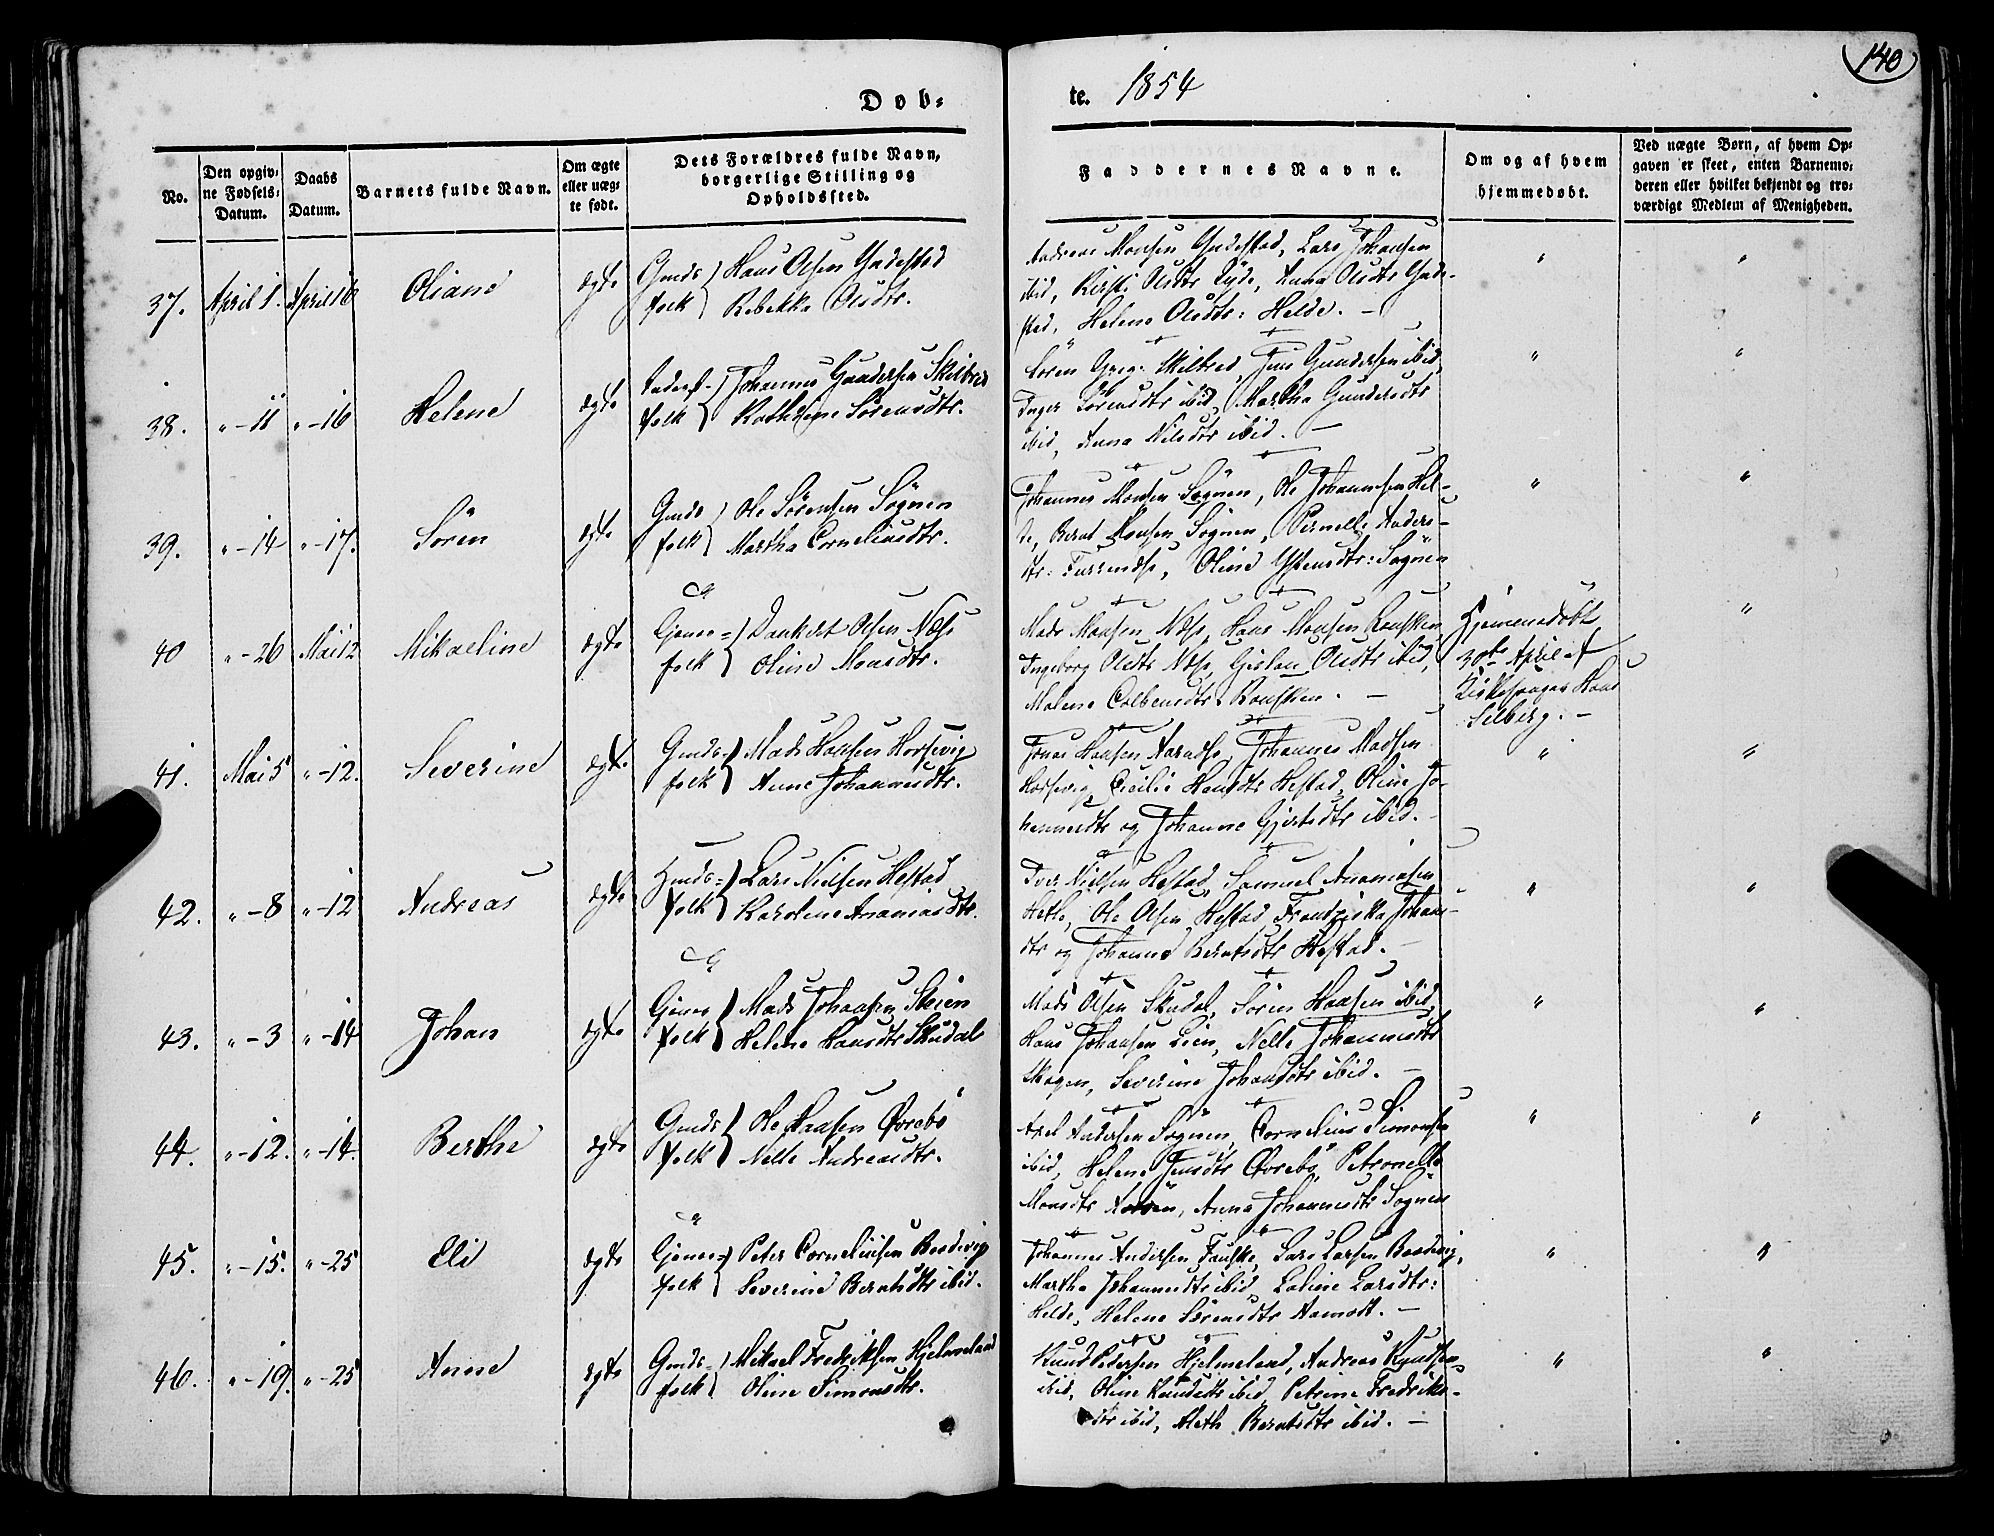 140
Døb-
te. 1854
No.
Den opgiv-
ne Fødsels-
Datum.
Daabs
Datum.
Barnets fulde Navn.
Om ægte
eller uæg-
te født.
Dets Forældres fulde Navn,
borgerlige Stilling og
Opholdssted.
Faddernes Navne.
Om og af hvem
hjemmedøbt.
Ved uægte Børn, af hvem Op-
gaven er skeet, enten Barnemo-
deren eller hvilket bekjendt og tro-
værdigt Medlem af Menigheden.
37. April 1. April 16 Oliane ægte Gmds folk Hans Olsen Yndestad
Rebekka Olsdtr.
Andreas Monsen Yndestad, Lars Johansen
ibid, Kirsti Olsdtr Tyde, Anna Olsdtr Ynde-
stad, Helene Olsdtr: Helde. - " "
38. " - 11 " - 16 Helene ægte folk Johannes Gundersen Skilbred
Kathrine Sørensdtr.
Søren Greg. Skilbred, Jens Gundersen ibid,
Inger Sørensdtr ibid, Martha Gundersdtr
ibid, Anna Nilsdtr ibid. - " "
39. " - 14 " - 17. Søren ægte Gmds folk Ole Sørensen Sögnen
Martha Corneliusdtr.
Johannes Monsen Sögnen, Ole Johannesen Hel-
de, Bernt Hansen Sögnen, Pernelle Anders-
dtr: , Oline Ystensdtr: Sögnen " "
40 " - 26 Mai 12 Mikaeline ægte Gjenes- folk Dankert Olsen Næss
Oline Monsdtr.
Mads Monsen Næss, Hans Monsen
Ingeborg Olsdtr Næss, Olsdtr ibid,
Malene Colbensdtr . -
Hjemmedøbt
30te April af
Kirkesanger Hans
Selberg. - "
41. Mai 5 " - 12. Severine ægte Gmds- folk Mads Hansen Horsevig
Anne Johannesdtr.
Jonas Hansen , Johannes Madsen
Horsevig, Cicilie Hansdtr Hestad, Oline Jo-
hannesdtr og Johanne Gjertsdtr ibid. - " "
42. " - 8 " - 12 Andreas ægte folk Lars Nielsen Hestad
Karolene Ananiasdtr.
Iver Nielsen Hestad, Samuel Ananiasen
Hetle, Ole Olsen Hestad, Frantziska Johans-
dtr og Johanne Berntsdtr Hestad. - " "
43. " - 3 " - 14 Johan ægte Gjenes folk Mads Johansen Steien
Helene Hansdtr Skudal
Mads Olsen Skudal, Søren Hansen ibid,
Hans Johansen Lien, Nelle Johannesdtr
Skogen, Severine Johansdtr ibid. - " "
44. " - 12. " - 14. Berthe ægte Gmds folk Ole Hansen Øvrebö
Nelle Andreasdtr.
Axel Andersen Sögnen, Cornelius Simonsen
ibid, Helene Jensdtr Øvrebö, Petronelle
Monsdtr , Anna Johannesdtr Sögnen " "
45. " - 15. " - 25 Eli ægte Gjenes- folk Peter Corneliusen Bordevig
Severine Berntsdtr ibid.
Johannes Andersen Fauske, Lars Larsen Bordevig,
Martha Johannesdtr ibid, Larsdtr:
Helde, Helene Sørensdtr Aamodt. - " "
46. " - 19. " - 25 Anne ægte Gmds- folk Mikael Fredriksen Hjelmeland
Oline Simonsdtr.
Knud Pedersen Hjelmeland, Andreas Knudsen
ibid, Oline Knudsdtr ibid, Petrine Fredriks-
dtr ibid, Aleth Berntsdtr ibid. - " "